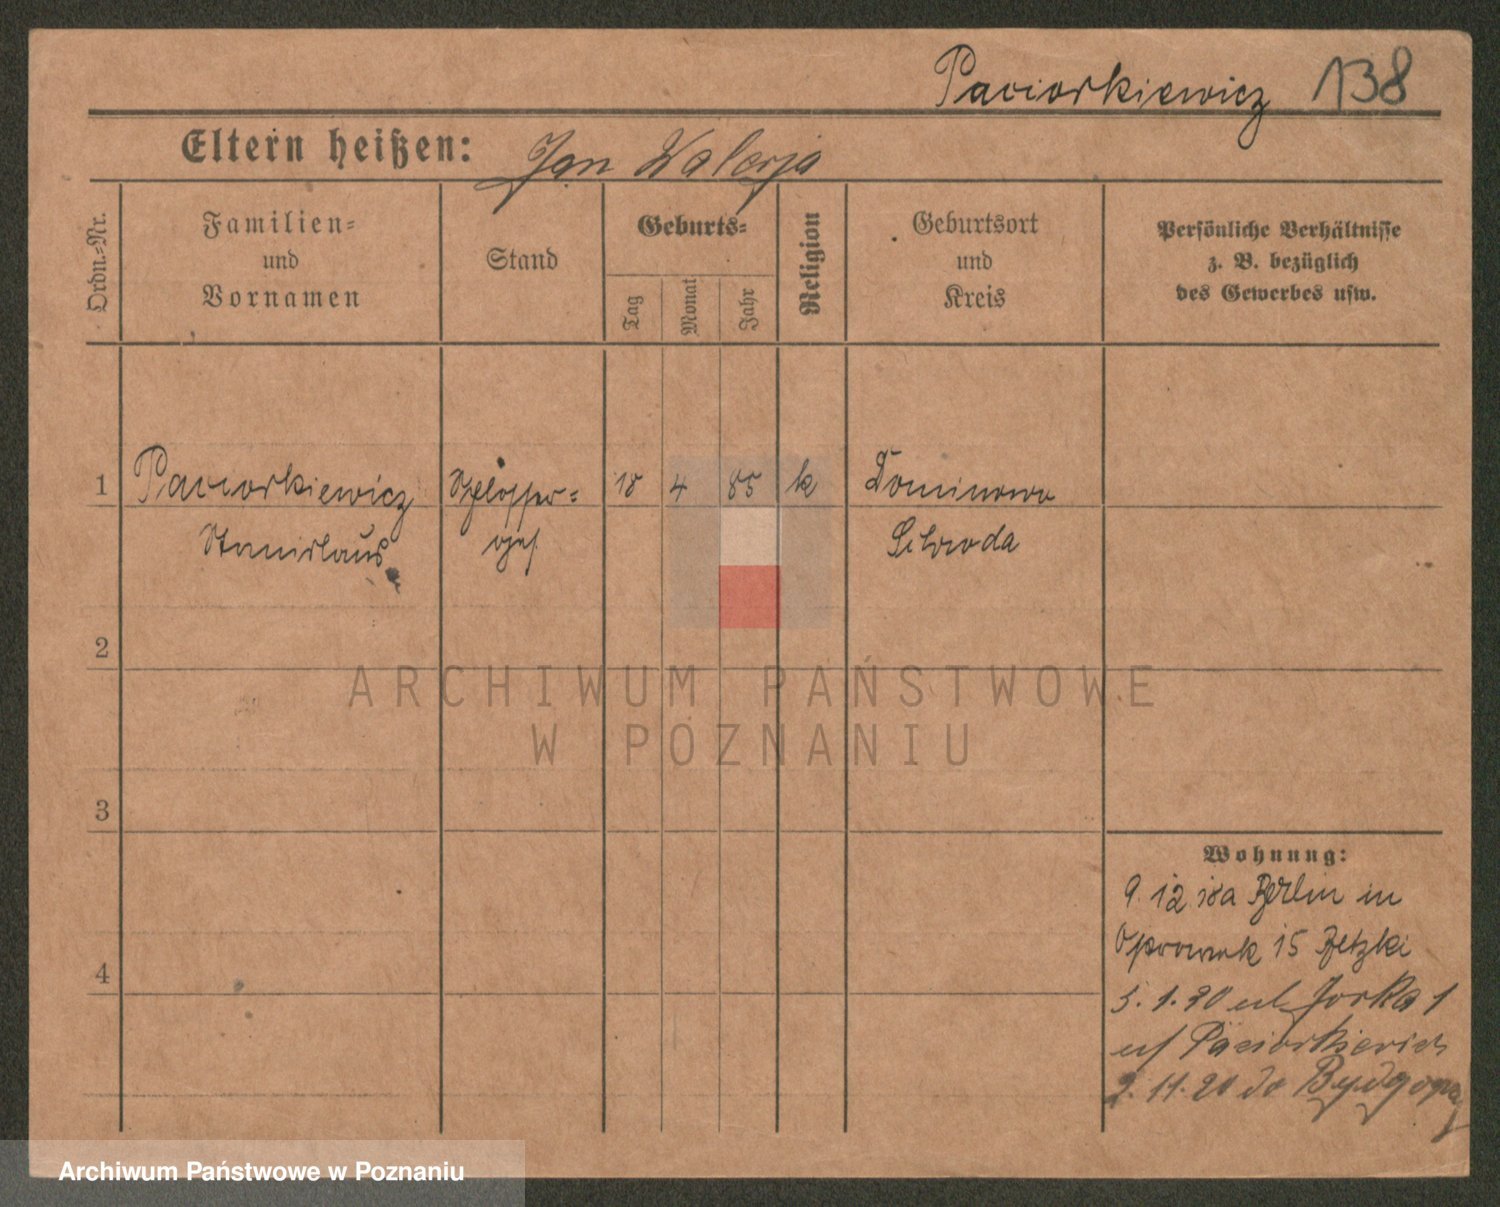 Paciorkiewicz 138
Eltern heißen: Jan Walerja
Ordn.-Nr.
Familien-
und
Vornamen
Stand
Geburts-
Tag
Monat
Jahr
Religion
Geburtsort
und
Kreis
Persönliche Verhältnisse
z. B. bezüglich
des Gewerbes usw.
1 Paciorkiewicz Schlosser- 18 4 85 k Dominowo
Stanislaus ges. Schroda
2
3
4
Wohnung:
9. 12 18a Berlin in
15
5. 1. 20 ul Jorka 1
2. 11. 20 do Bydgoszcz
ARCHIWUM PAŃSTWOWE
W POZNANIU
Archiwum Państwowe w Poznaniu